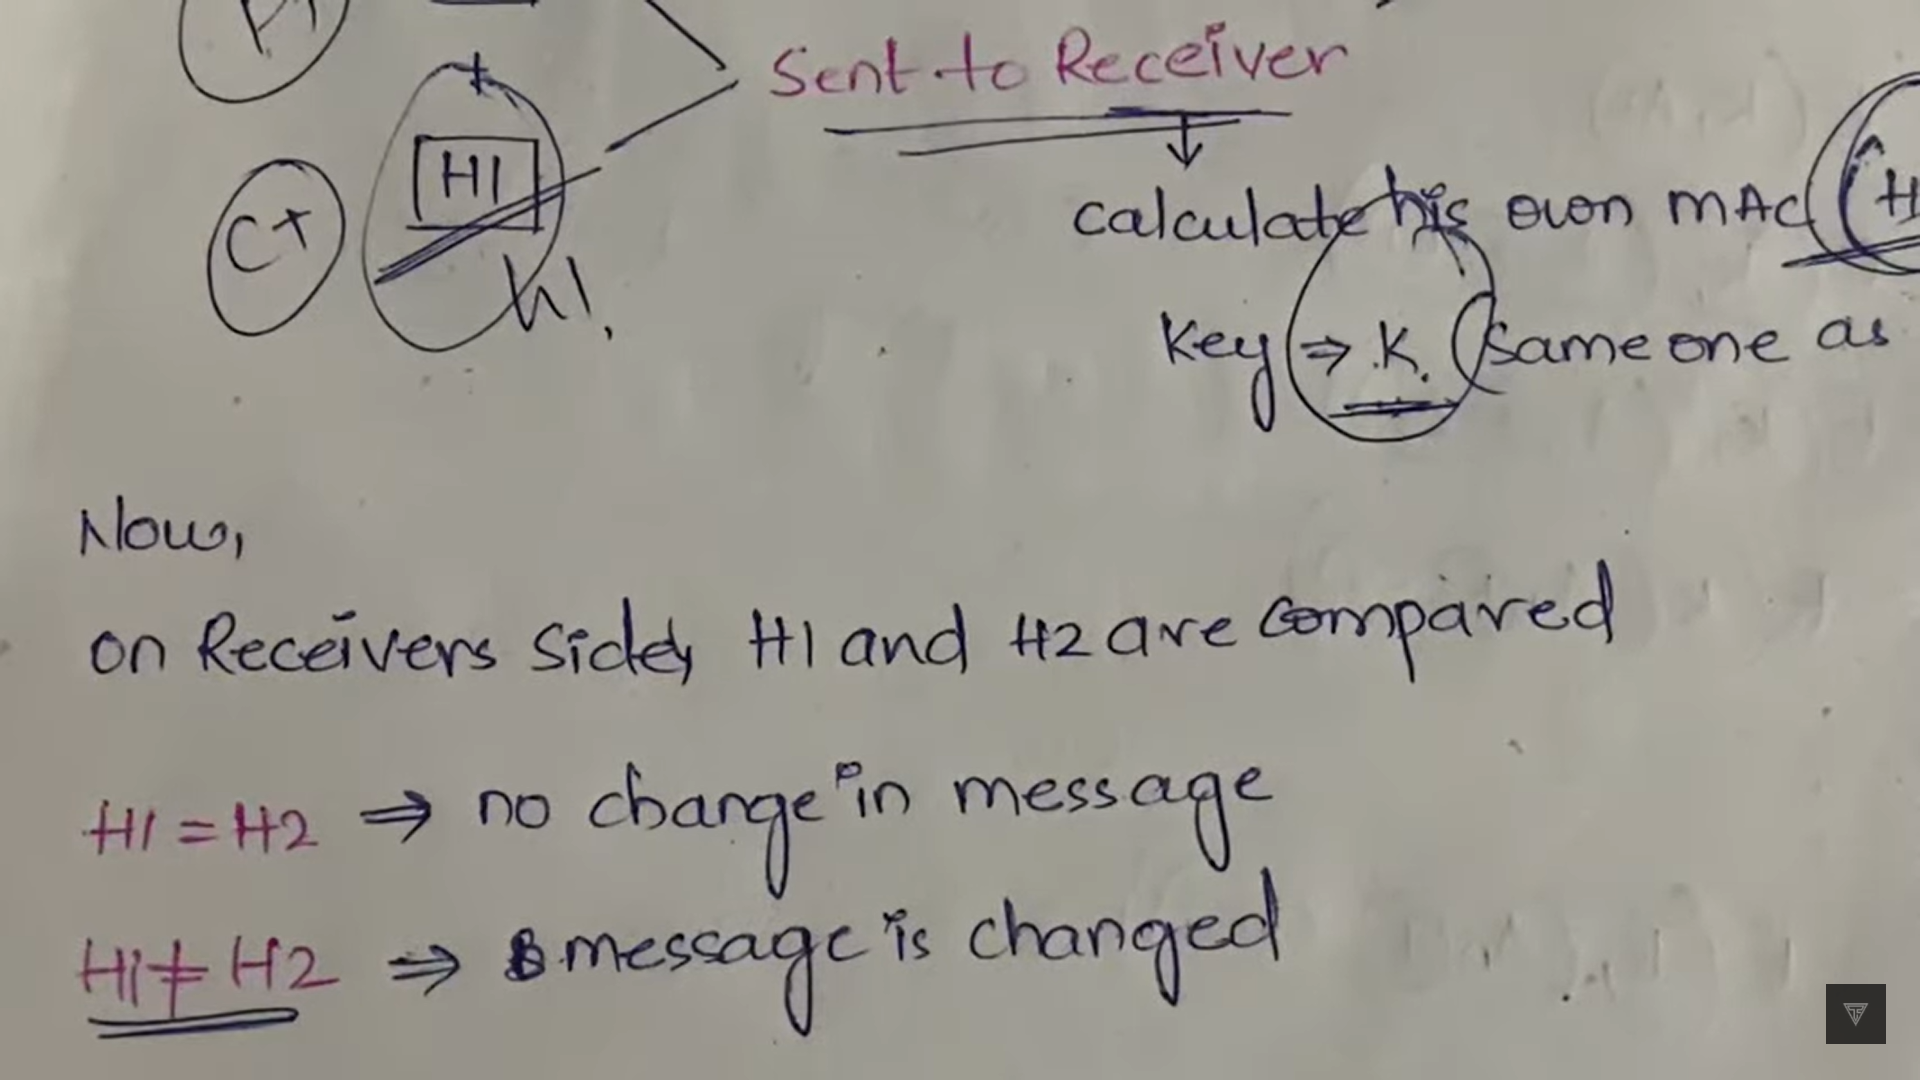 Sent to Receiver
+
H1
CT
h1,
calculate his own MAC (H
Key ⇒ K. (Same one as
Now,
on Receivers side, H1 and H2 are compared
H1 = H2 ⇒ no change in message
H1 ≠ H2 ⇒ message is changed